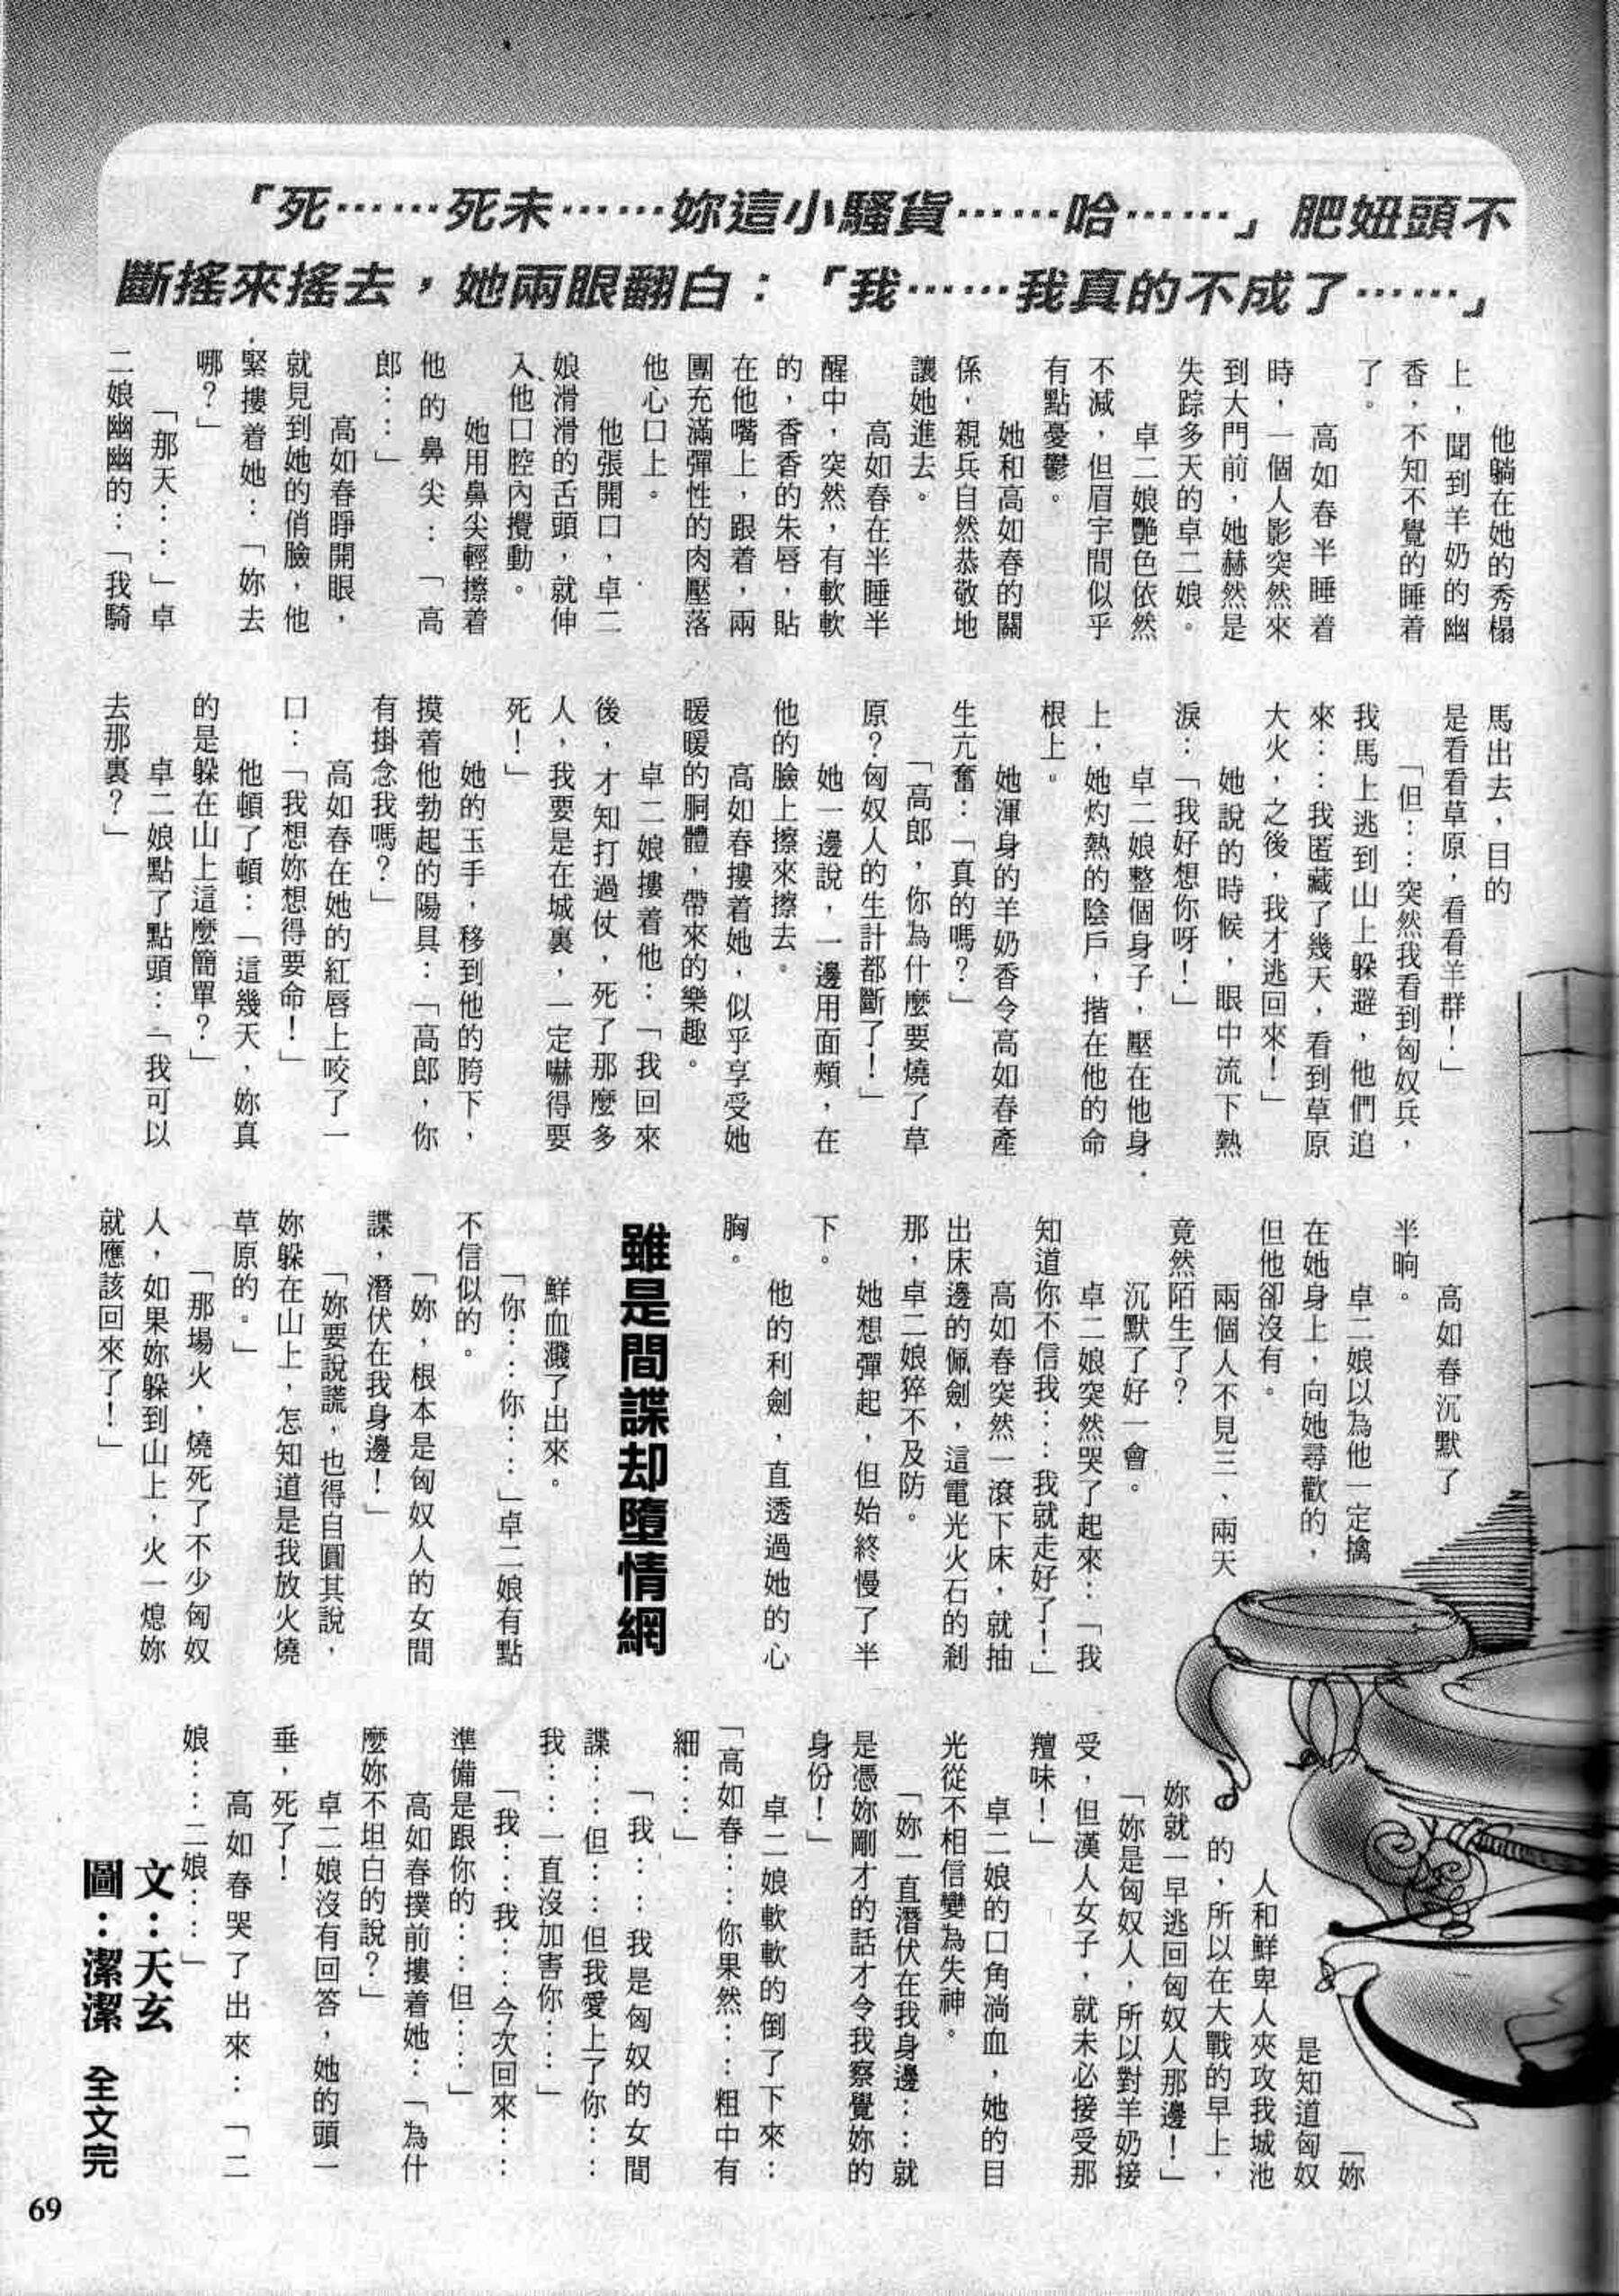 「死……死未……妳這小騷貨……哈……」肥妞頭不
斷搖來搖去，她兩眼翻白：「我……我真的不成了……」
他躺在她的秀榻
上，聞到羊奶的幽
香，不知不覺的睡着
了。
高如春半睡着
時，一個人影突然來
到大門前，她赫然是
失踪多天的卓二娘。
卓二娘艷色依然
不減，但眉宇間似乎
有點憂鬱。
她和高如春的關
係，親兵自然恭敬地
讓她進去。
高如春在半睡半
醒中，突然，有軟軟
的，香香的朱唇，貼
在他嘴上，跟着，兩
團充滿彈性的肉壓落
他心口上。
他張開口，卓二
娘滑滑的舌頭，就伸
入他口腔內攪動。
她用鼻尖輕擦着
他的鼻尖：「高
郎……」
高如春睜開眼，
就見到她的俏臉，他
緊摟着她：「妳去
哪？」
「那天……」卓
二娘幽幽的：「我騎
馬出去，目的
是看看草原，看看羊群！」
「但……突然我看到匈奴兵，
我馬上逃到山上躲避，他們追
來……我匿藏了幾天，看到草原
大火，之後，我才逃回來！」
她說的時候，眼中流下熱
淚：「我好想你呀！」
卓二娘整個身子，壓在他身
上，她灼熱的陰戶，揩在他的命
根上。
她渾身的羊奶香令高如春產
生亢奮：「真的嗎？」
「高郎，你為什麼要燒了草
原？匈奴人的生計都斷了！」
她一邊說，一邊用面頰，在
他的臉上擦來擦去。
高如春摟着她，似乎享受她
暖暖的胴體，帶來的樂趣。
卓二娘摟着他：「我回來
後，才知打過仗，死了那麼多
人，我要是在城裏，一定嚇得要
死！」
她的玉手，移到他的胯下，
摸着他勃起的陽具：「高郎，你
有掛念我嗎？」
高如春在她的紅唇上咬了一
口：「我想妳想得要命！」
他頓了頓：「這幾天，妳真
的是躲在山上這麼簡單？」
卓二娘點了點頭：「我可以
去那裏？」
高如春沉默了
半晌。
卓二娘以為他一定擒
在她身上，向她尋歡的，
但他卻沒有。
兩個人不見三、兩天
竟然陌生了？
沉默了好一會。
卓二娘突然哭了起來：「我
知道你不信我……我就走好了！」
高如春突然一滾下床，就抽
出床邊的佩劍，這電光火石的剎
那，卓二娘猝不及防。
她想彈起，但始終慢了半
下。
他的利劍，直透過她的心
胸。
雖是間諜却墮情網
鮮血濺了出來。
「你……你……」卓二娘有點
不信似的。
「妳，根本是匈奴人的女間
諜，潛伏在我身邊！」
「妳要說謊，也得自圓其說，
妳躲在山上，怎知道是我放火燒
草原的。」
「那場火，燒死了不少匈奴
人，如果妳躲到山上，火一熄妳
就應該回來了！」
「妳
是知道匈奴
人和鮮卑人夾攻我城池
的，所以在大戰的早上，
妳就一早逃回匈奴人那邊！」
「妳是匈奴人，所以對羊奶接
受，但漢人女子，就未必接受那
羶味！」
卓二娘的口角淌血，她的目
光從不相信變為失神。
「妳一直潛伏在我身邊……就
是憑妳剛才的話才令我察覺妳的
身份！」
卓二娘軟軟的倒了下來：
「高如春……你果然……粗中有
細……」
「我……我是匈奴的女間
諜……但……但我愛上了你……
我……一直沒加害你……」
「我……我……今次回來……
準備是跟你的……但……」
高如春撲前摟着她：「為什
麼妳不坦白的說？」
卓二娘沒有回答，她的頭一
垂，死了！
高如春哭了出來：「二
娘……二娘……」
文：天玄
圖：潔潔　全文完
69